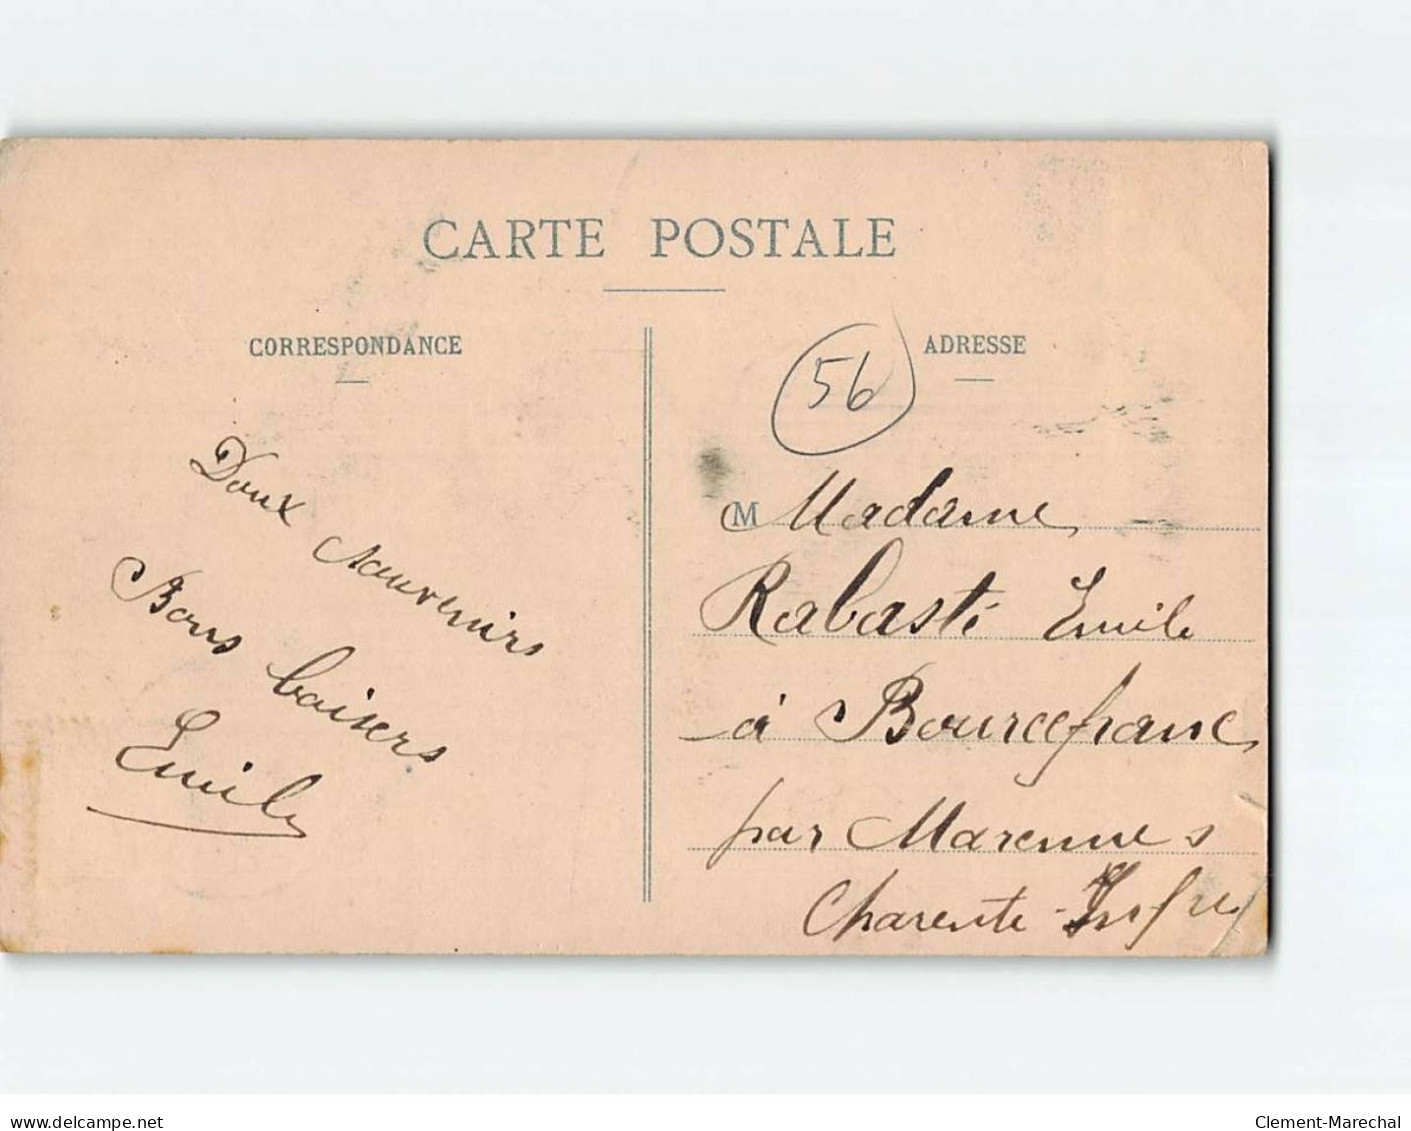 CARTE POSTALE
CORRESPONDANCE
ADRESSE
56
Doux souvenirs
Bons baisers
Emile
M Madame
Rabasté Emile
à Bourcefranc
par Marennes
Charente-Infre
www.delcampe.net
Clement-Marechal